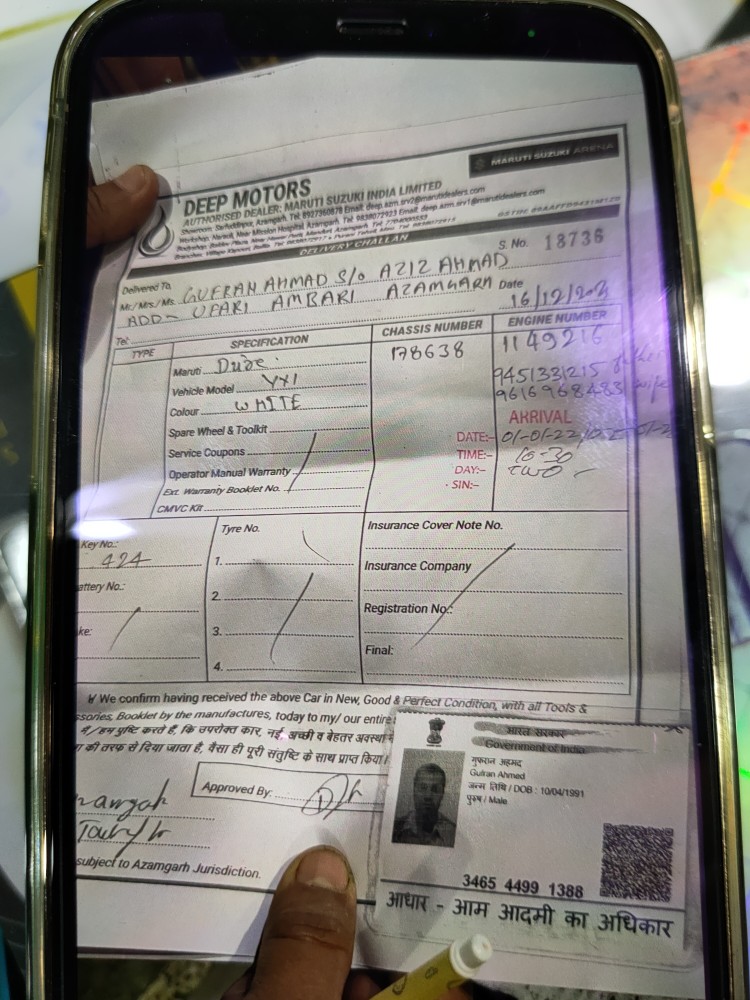 MARUTI SUZUKI ARENA
DEEP MOTORS
AUTHORISED DEALER: MARUTI SUZUKI INDIA LIMITED
Showroom: Sarfuddinpur, Azamgarh, Tel: 8927360878 Email: deep.azm.srv2@marutidealers.com
Workshop: Narauli, Near Mission Hospital, Azamgarh, Tel: 9838072923 Email: deep.azm.srv1@marutidealers.com
DELIVERY CHALLAN
S. No. 18736
Delivered To
Mr./Mrs./Ms. GUFRAN AHMAD S/o AZIZ AHMAD
ADD- UPARI AMBARI AZAMGARH Date 16/12/
Tel:
TYPE SPECIFICATION CHASSIS NUMBER ENGINE NUMBER
Maruti Dzire 178638 1149216
Vehicle Model VXI 9451331215 father
Colour WHITE 9616968483 wife
Spare Wheel & Toolkit ARRIVAL
Service Coupons DATE:- 01-01-22
Operator Manual Warranty TIME:- 10-30
Ext. Warranty Booklet No. DAY:- TWO
CMVC Kit SIN:-
Key No.: 424
attery No.:
ke:
Tyre No.
1.
2.
3.
4.
Insurance Cover Note No.
Insurance Company
Registration No.:
Final:
We confirm having received the above Car in New, Good & Perfect Condition, with all Tools &
ssories, Booklet by the manufactures, today to my/ our entire
मैं/हम पुष्टि करते हैं, कि उपरोक्त कार, नई, अच्छी व बेहतर अवस्था में
की तरफ से दिया जाता है, वैसा ही पूरी संतुष्टि के साथ प्राप्त किया।
Approved By:
subject to Azamgarh Jurisdiction.
भारत सरकार
Government of India
गुफरान अहमद
Gufran Ahmed
जन्म तिथि / DOB : 10/04/1991
पुरुष / Male
3465 4499 1388
आधार - आम आदमी का अधिकार